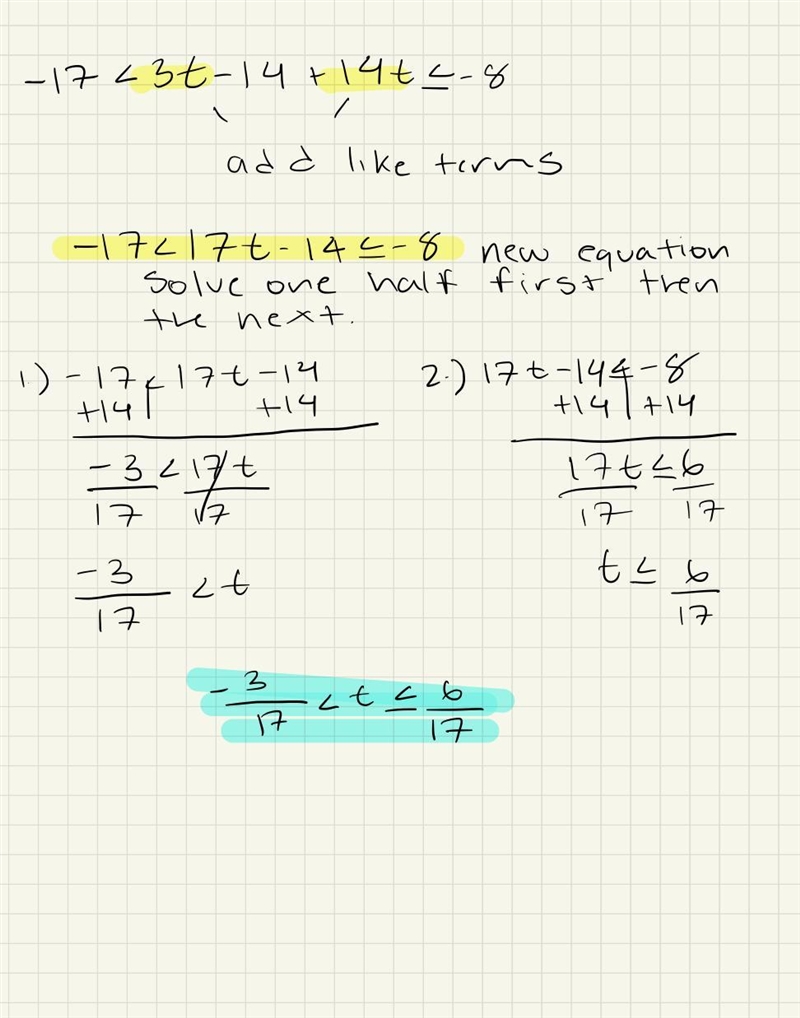 -17 < 3t - 14 + 14t ≤ -8
add like terms
-17 < 17t - 14 ≤ -8 new equation
solve one half first then
the next.
1.) -17 < 17t - 14
+14 +14
-3/17 < 17t/17
-3/17 < t
2.) 17t - 14 ≤ -8
+14 +14
17t/17 ≤ 6/17
t ≤ 6/17
-3/17 < t ≤ 6/17